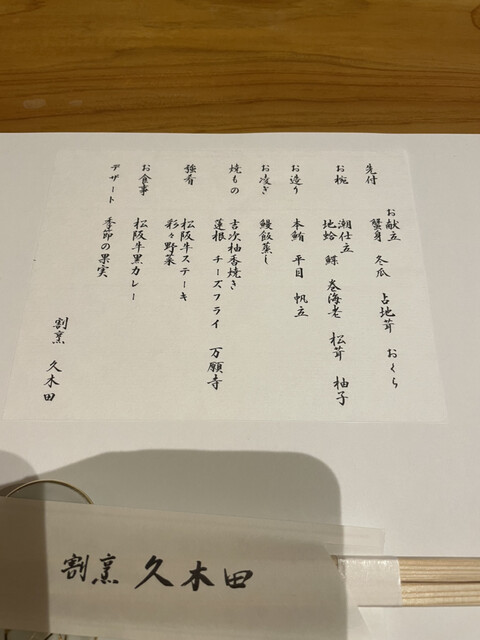 お献立
先付
蟹身 冬瓜 占地茸 おくら
お椀
潮仕立
地蛤 鰈 巻海老 松茸 柚子
お造り
本鮪 平目 帆立
お凌ぎ
鰻飯蒸し
焼もの
吉次柚香焼き
蓮根 チーズフライ 万願寺
強肴
松阪牛ステーキ
彩々野菜
お食事
松阪牛黒カレー
デザート
季節の果実
割烹 久木田
割烹 久木田